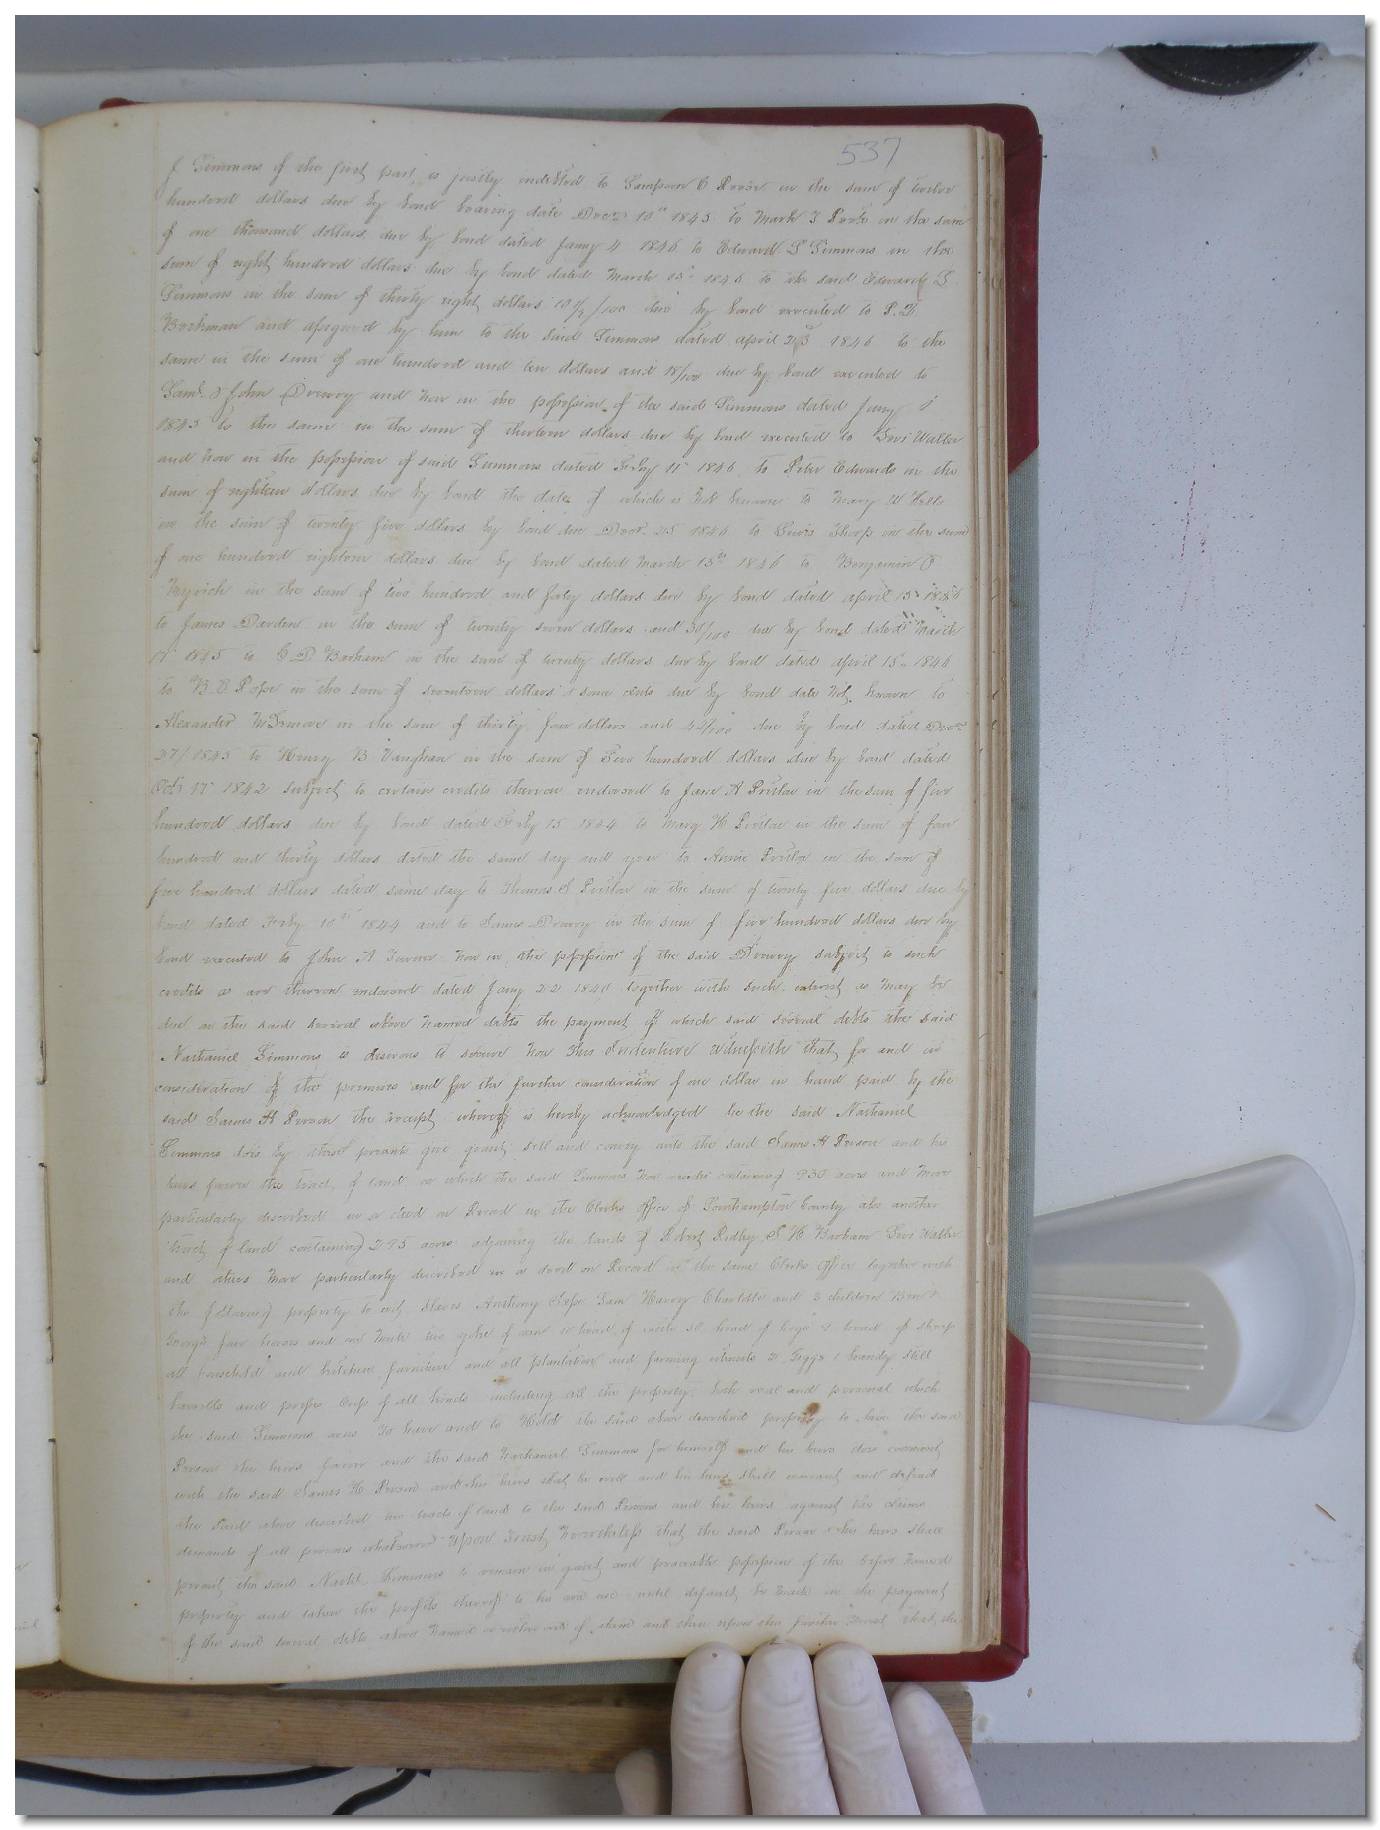 537
J Simmons of the first part is justly indebted to Sampson C Reese in the sum of twelve
hundred dollars due by bond bearing date Decr 10th 1845 to Mark J in the sum
of one thousand dollars due by bond dated Jany 4 1846 to Edward S Simmons in the
sum of eight hundred dollars due by bond dated March 15th 1846 to the said Edward S
Simmons in the sum of thirty eight dollars /100 due by bond executed to
and assigned by him to the said Simmons dated april 23 1846 to the
same in the sum of one hundred and ten dollars and 18/100 due by bond executed to
Saml & John Drewry and now in the possession of the said Simmons dated Jany
1845 to the same in the sum of thirteen dollars due by bond executed to Levi Waller
and now in the possession of said Simmons dated Feby 11 1846 to Peter Edwards in the
sum of eighteen dollars due by bond the date of which is not known to Mary W
in the sum of twenty five dollars by bond due Decr 25 1846 to Lewis Thorp in the sum
of one hundred eighteen dollars due by bond dated March 15th 1846 to Benjamin
in the sum of two hundred and forty dollars due by bond dated april 15 1846
to James Darden in the sum of twenty seven dollars and 30/100 due by bond dated March
17 1845 to C D Barham in the sum of twenty dollars due by bond dated april 15 1846
to B E Pope in the sum of seventeen dollars & some cents due by bond date not known to
Alexander in the sum of thirty four dollars and 42/100 due by bond dated Decr
27/1845 to Henry B Vaughan in the sum of Two hundred dollars due by bond dated
Octr 17 1842 subject to certain credits thereon endorsed to Jane A Pretlow in the sum of five
hundred dollars due by bond dated Feby 15 1844 to Mary H Pretlow in the sum of four
hundred and thirty dollars dated the same day and year to Annie Pretlow in the sum of
five hundred dollars dated same day to Thomas S Pretlow in the sum of twenty five dollars due by
bond dated Feby 10th 1844 and to James Drewry in the sum of five hundred dollars due by
bond executed to John A now in the possession of the said Drewry subject to such
credits as are thereon endorsed dated Jany 22 1840 together with such interest as may be
due on the said several above named debts the payment of which said several debts the said
Nathaniel Simmons is desirous to secure Now This Indenture witnesseth that for and in
consideration of the premises and for the further consideration of one dollar in hand paid by the
said James H Person the receipt whereof is hereby acknowledged he the said Nathaniel
Simmons does by these presents give grant sell and convey unto the said James H Person and his
heirs forever the tract of land on which the said Simmons now resides containing 930 acres and more
particularly described in a deed on Record in the Clerks office of Southampton County also another
tract of land containing 295 acres adjoining the lands of Robert Ridley S H Barham Levi Waller
and others more particularly described in a deed on Record in the same Clerks office together with
the following property to wit, slaves Anthony Sam Harvey Charlotte and 3 children
George four horses and one mule two yoke of oxen 10 head of cattle 50 head of hogs 9 head of sheep
all household and kitchen furniture and all plantation and farming utensils 2 Giggs 1 brandy still
barrells and present Crop of all kinds including all the property both real and personal which
the said Simmons owns To have and to Hold the said above described property to have the said
Person his heirs forever and the said Nathaniel Simmons for himself and his heirs does covenant
with the said James H Person and his heirs that he will and his heirs shall warrant and defend
the said above described two tracts of land to the said Person and his heirs against the claims
demands of all persons whatsoever upon Trust Nevertheless that the said Person & his heirs shall
permit the said Nathl Simmons to remain in quiet and peaceable possession of the before named
property and take the profits thereof to his own use until default be made in the payment
of the said several debts above named or either of them and then upon the further Trust that the